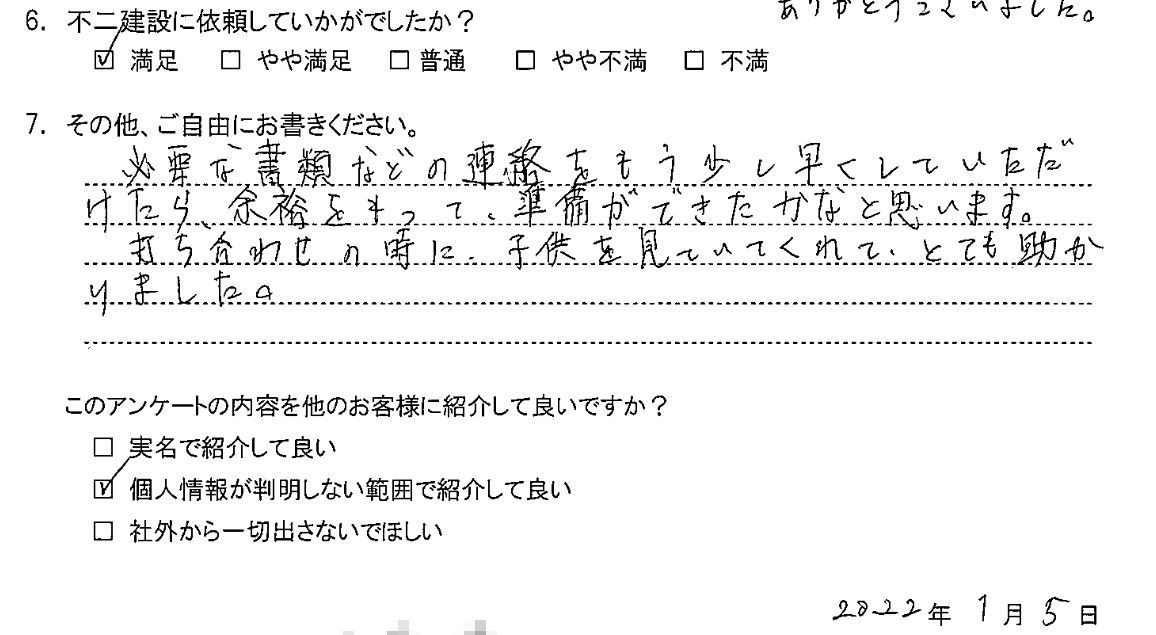 ありがとうございました。
6. 不二建設に依頼していかがでしたか？
☑ 満足 □ やや満足 □ 普通 □ やや不満 □ 不満
7. その他、ご自由にお書きください。
必要な書類などの連絡をもう少し早くしていただだ
けたら、余裕をもって、準備ができたかなと思います。
打ち合わせの時に、子供を見ていてくれて、とても助か
りました。
このアンケートの内容を他のお客様に紹介して良いですか？
□ 実名で紹介して良い
☑ 個人情報が判明しない範囲で紹介して良い
□ 社外から一切出さないでほしい
2022年 1月 5日